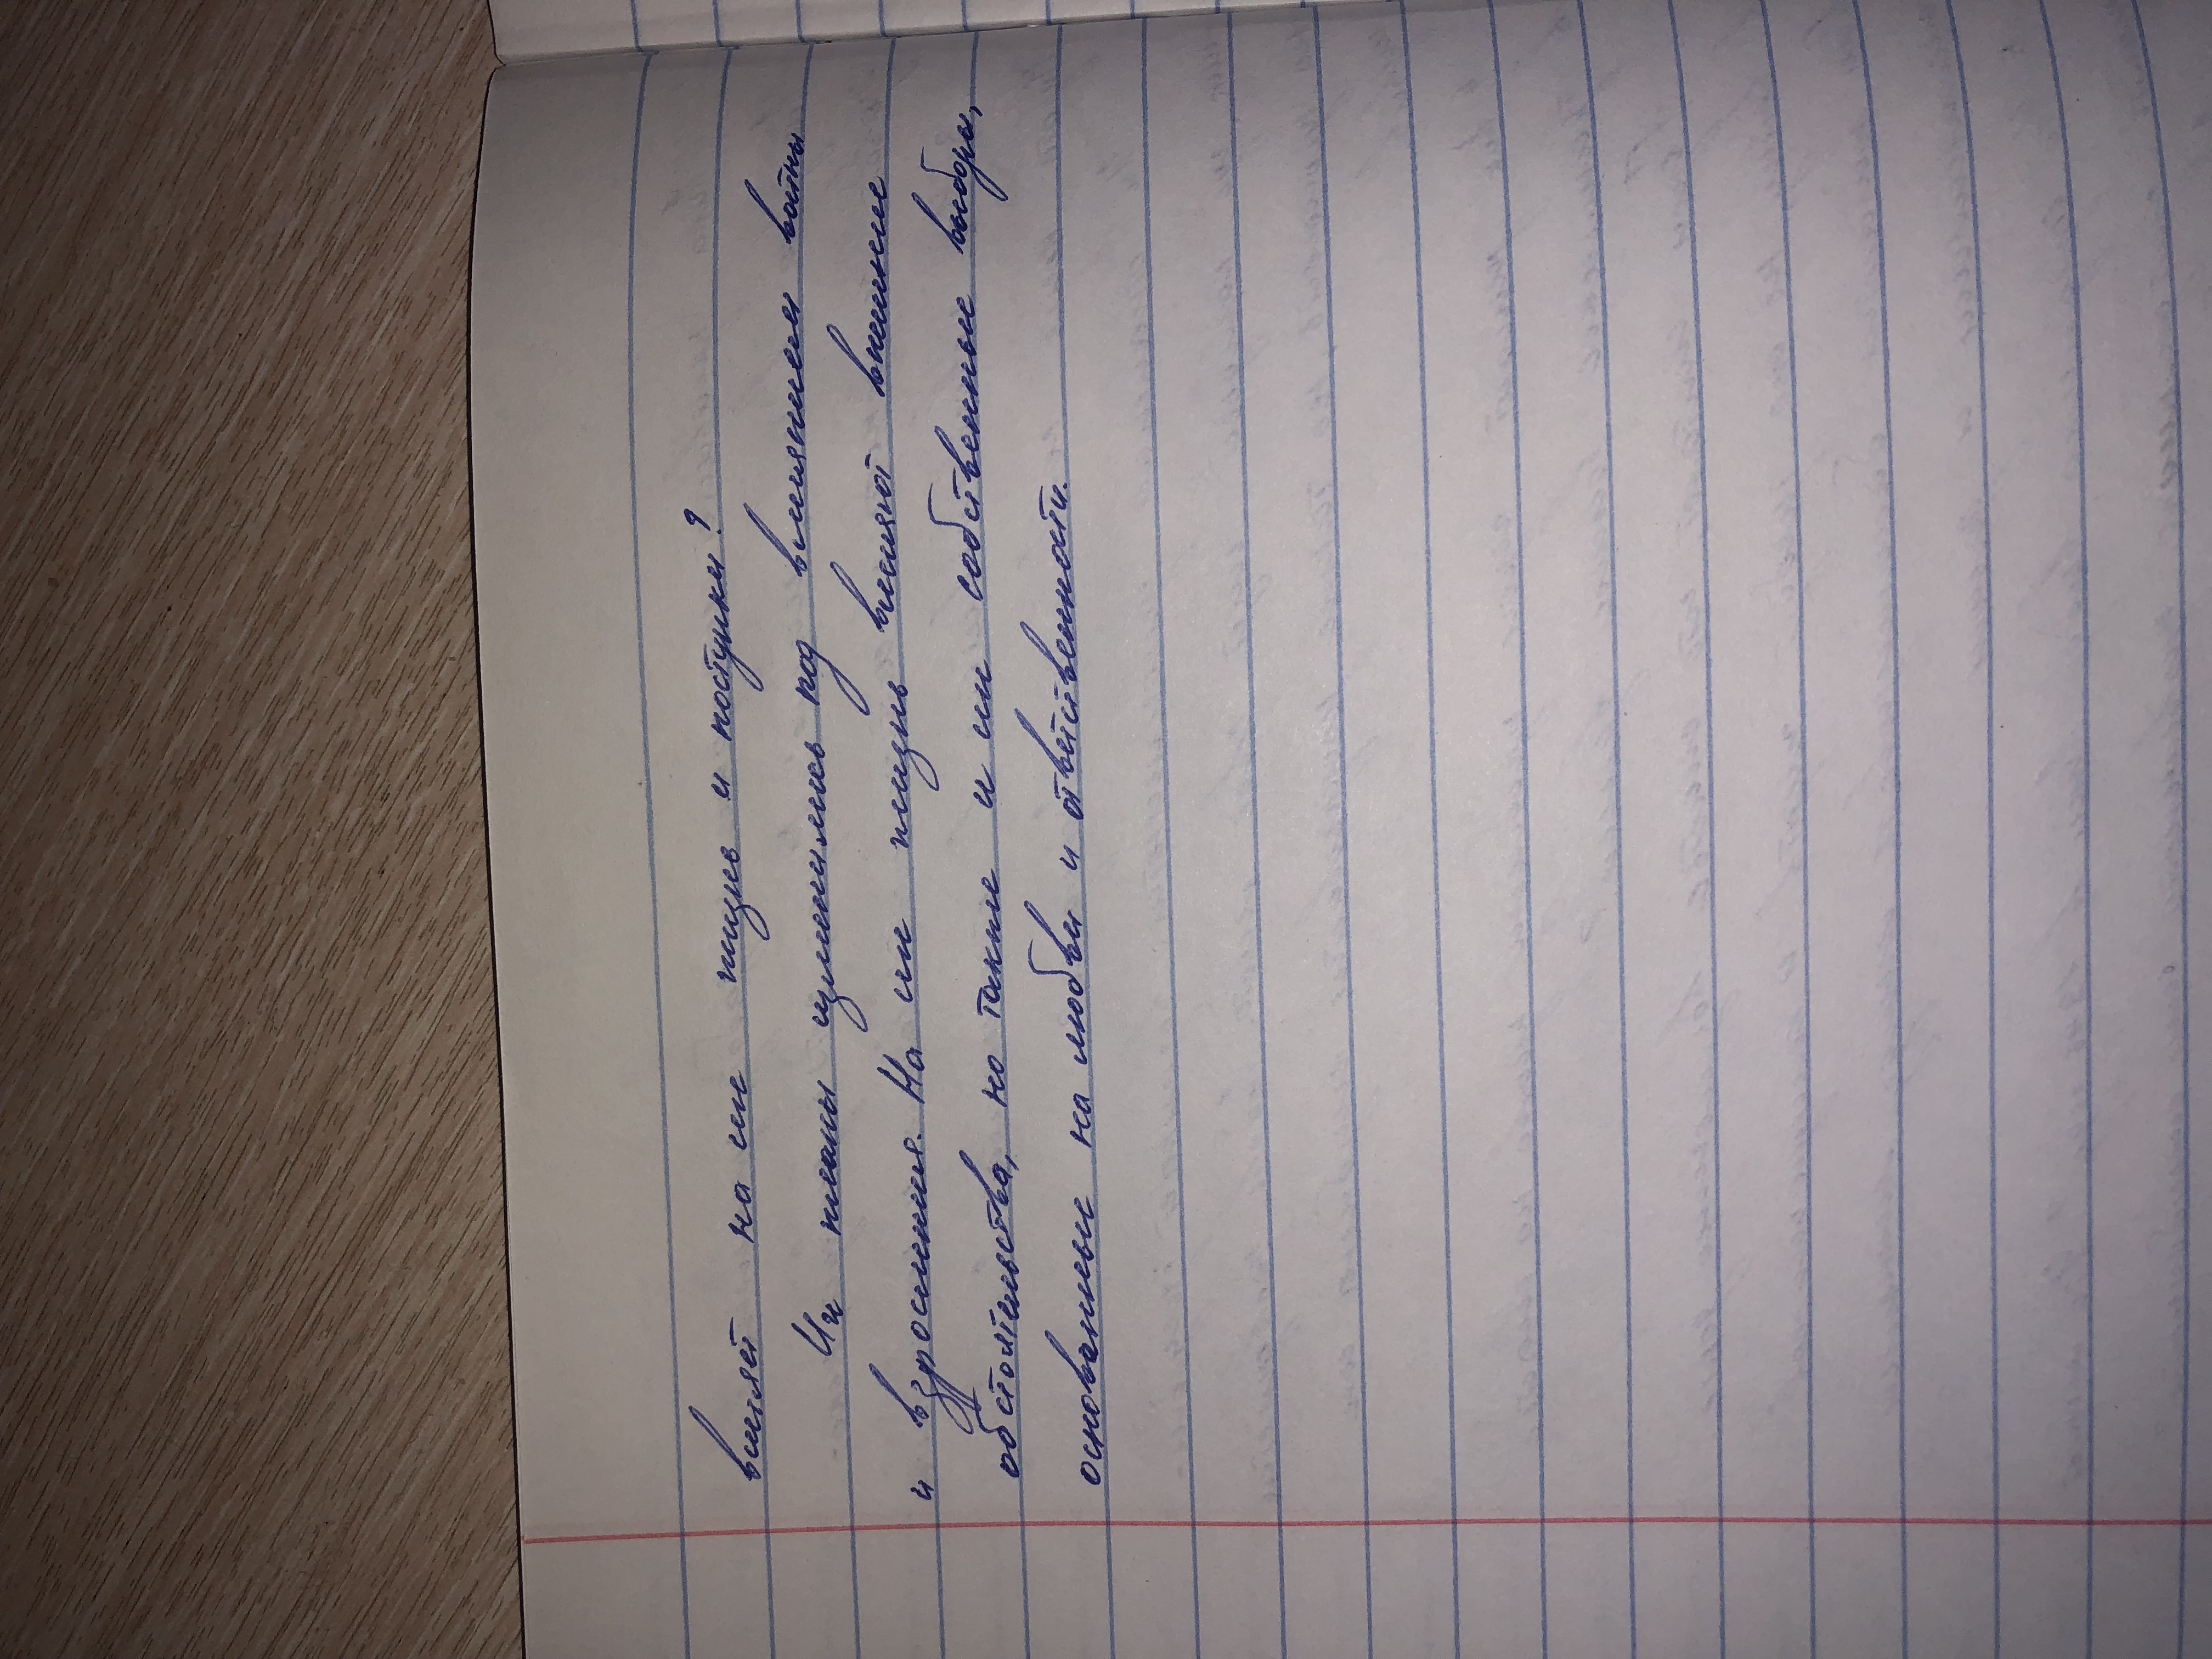 влияет на их жизнь и поступки?
Их планы изменились под влиянием войны
и взросления. На их жизнь влияют внешние
обстоятельства, но также и их собственные выборы,
основанные на любви и ответственности.